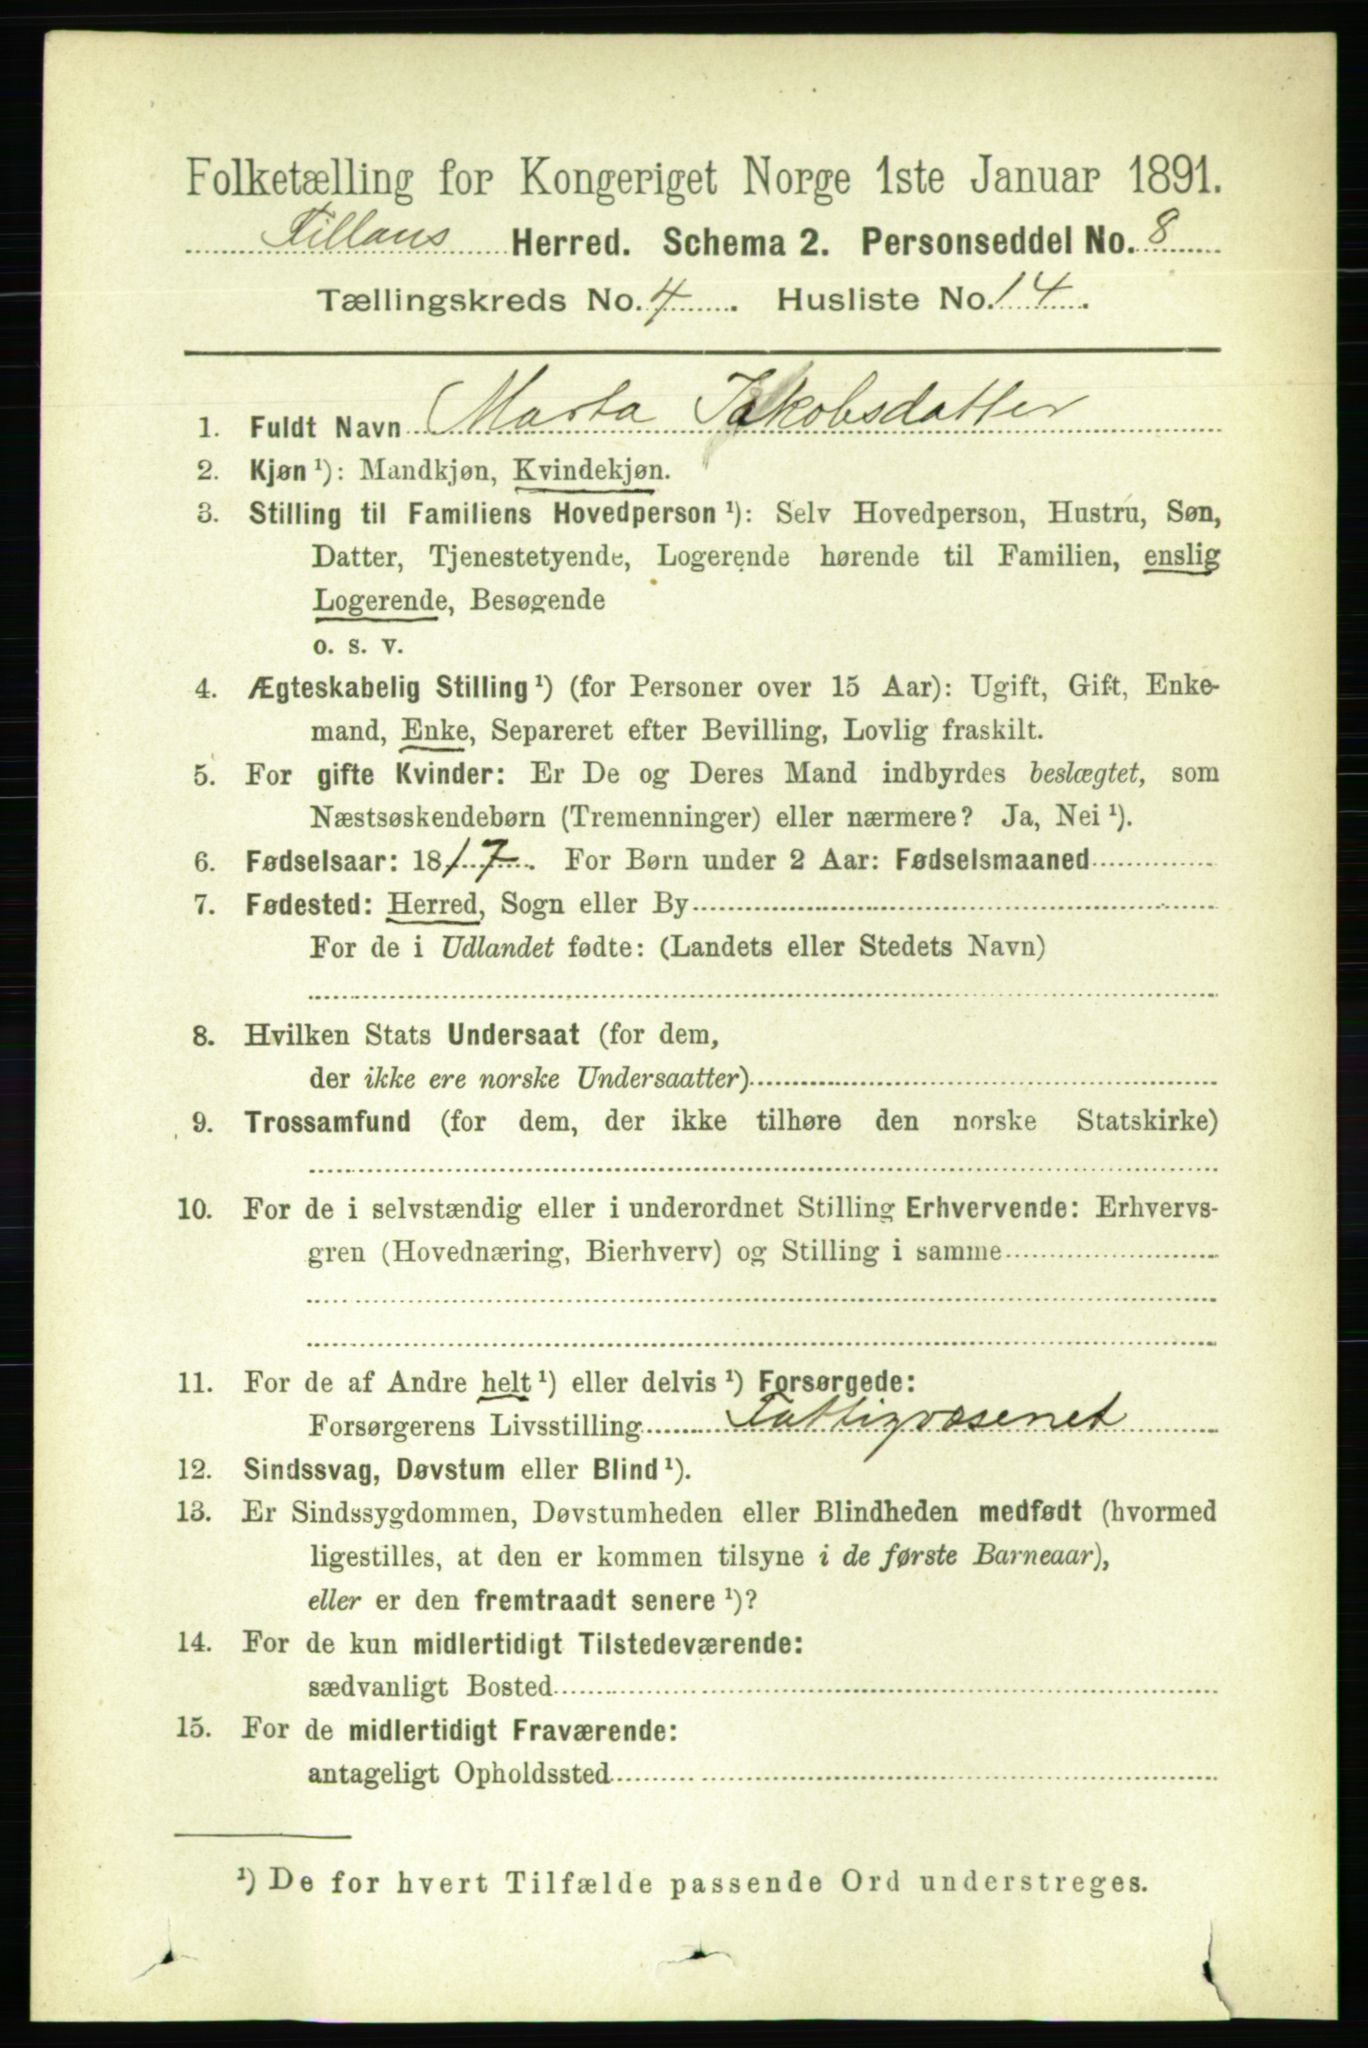 Folketælling for Kongeriget Norge 1ste Januar 1891.
Fillans Herred. Schema 2. Personseddel No. 8
Tællingskreds No. 4. Husliste No. 14.
1. Fuldt Navn Marta Jakobsdatter
2. Kjøn ¹): Mandkjøn, Kvindekjøn.
3. Stilling til Familiens Hovedperson ¹): Selv Hovedperson, Hustru, Søn,
Datter, Tjenestetyende, Logerende hørende til Familien, enslig
Logerende, Besøgende
o. s. v.
4. Ægteskabelig Stilling ¹) (for Personer over 15 Aar): Ugift, Gift, Enke-
mand, Enke, Separeret efter Bevilling, Lovlig fraskilt.
5. For gifte Kvinder: Er De og Deres Mand indbyrdes beslægtet, som
Næstsøskendebørn (Tremenninger) eller nærmere? Ja, Nei ¹).
6. Fødselsaar: 1817. For Børn under 2 Aar: Fødselsmaaned
7. Fødested: Herred, Sogn eller By
For de i Udlandet fødte: (Landets eller Stedets Navn)
8. Hvilken Stats Undersaat (for dem,
der ikke ere norske Undersaatter)
9. Trossamfund (for dem, der ikke tilhøre den norske Statskirke)
10. For de i selvstændig eller i underordnet Stilling Erhvervende: Erhvervs-
gren (Hovednæring, Bierhverv) og Stilling i samme
11. For de af Andre helt ¹) eller delvis ¹) Forsørgede:
Forsørgerens Livsstilling Fattigvæsenet
12. Sindssvag, Døvstum eller Blind ¹).
13. Er Sindssygdommen, Døvstumheden eller Blindheden medfødt (hvormed
ligestilles, at den er kommen tilsyne i de første Barneaar),
eller er den fremtraadt senere ¹)?
14. For de kun midlertidigt Tilstedeværende:
sædvanligt Bosted
15. For de midlertidigt Fraværende:
antageligt Opholdssted
¹) De for hvert Tilfælde passende Ord understreges.